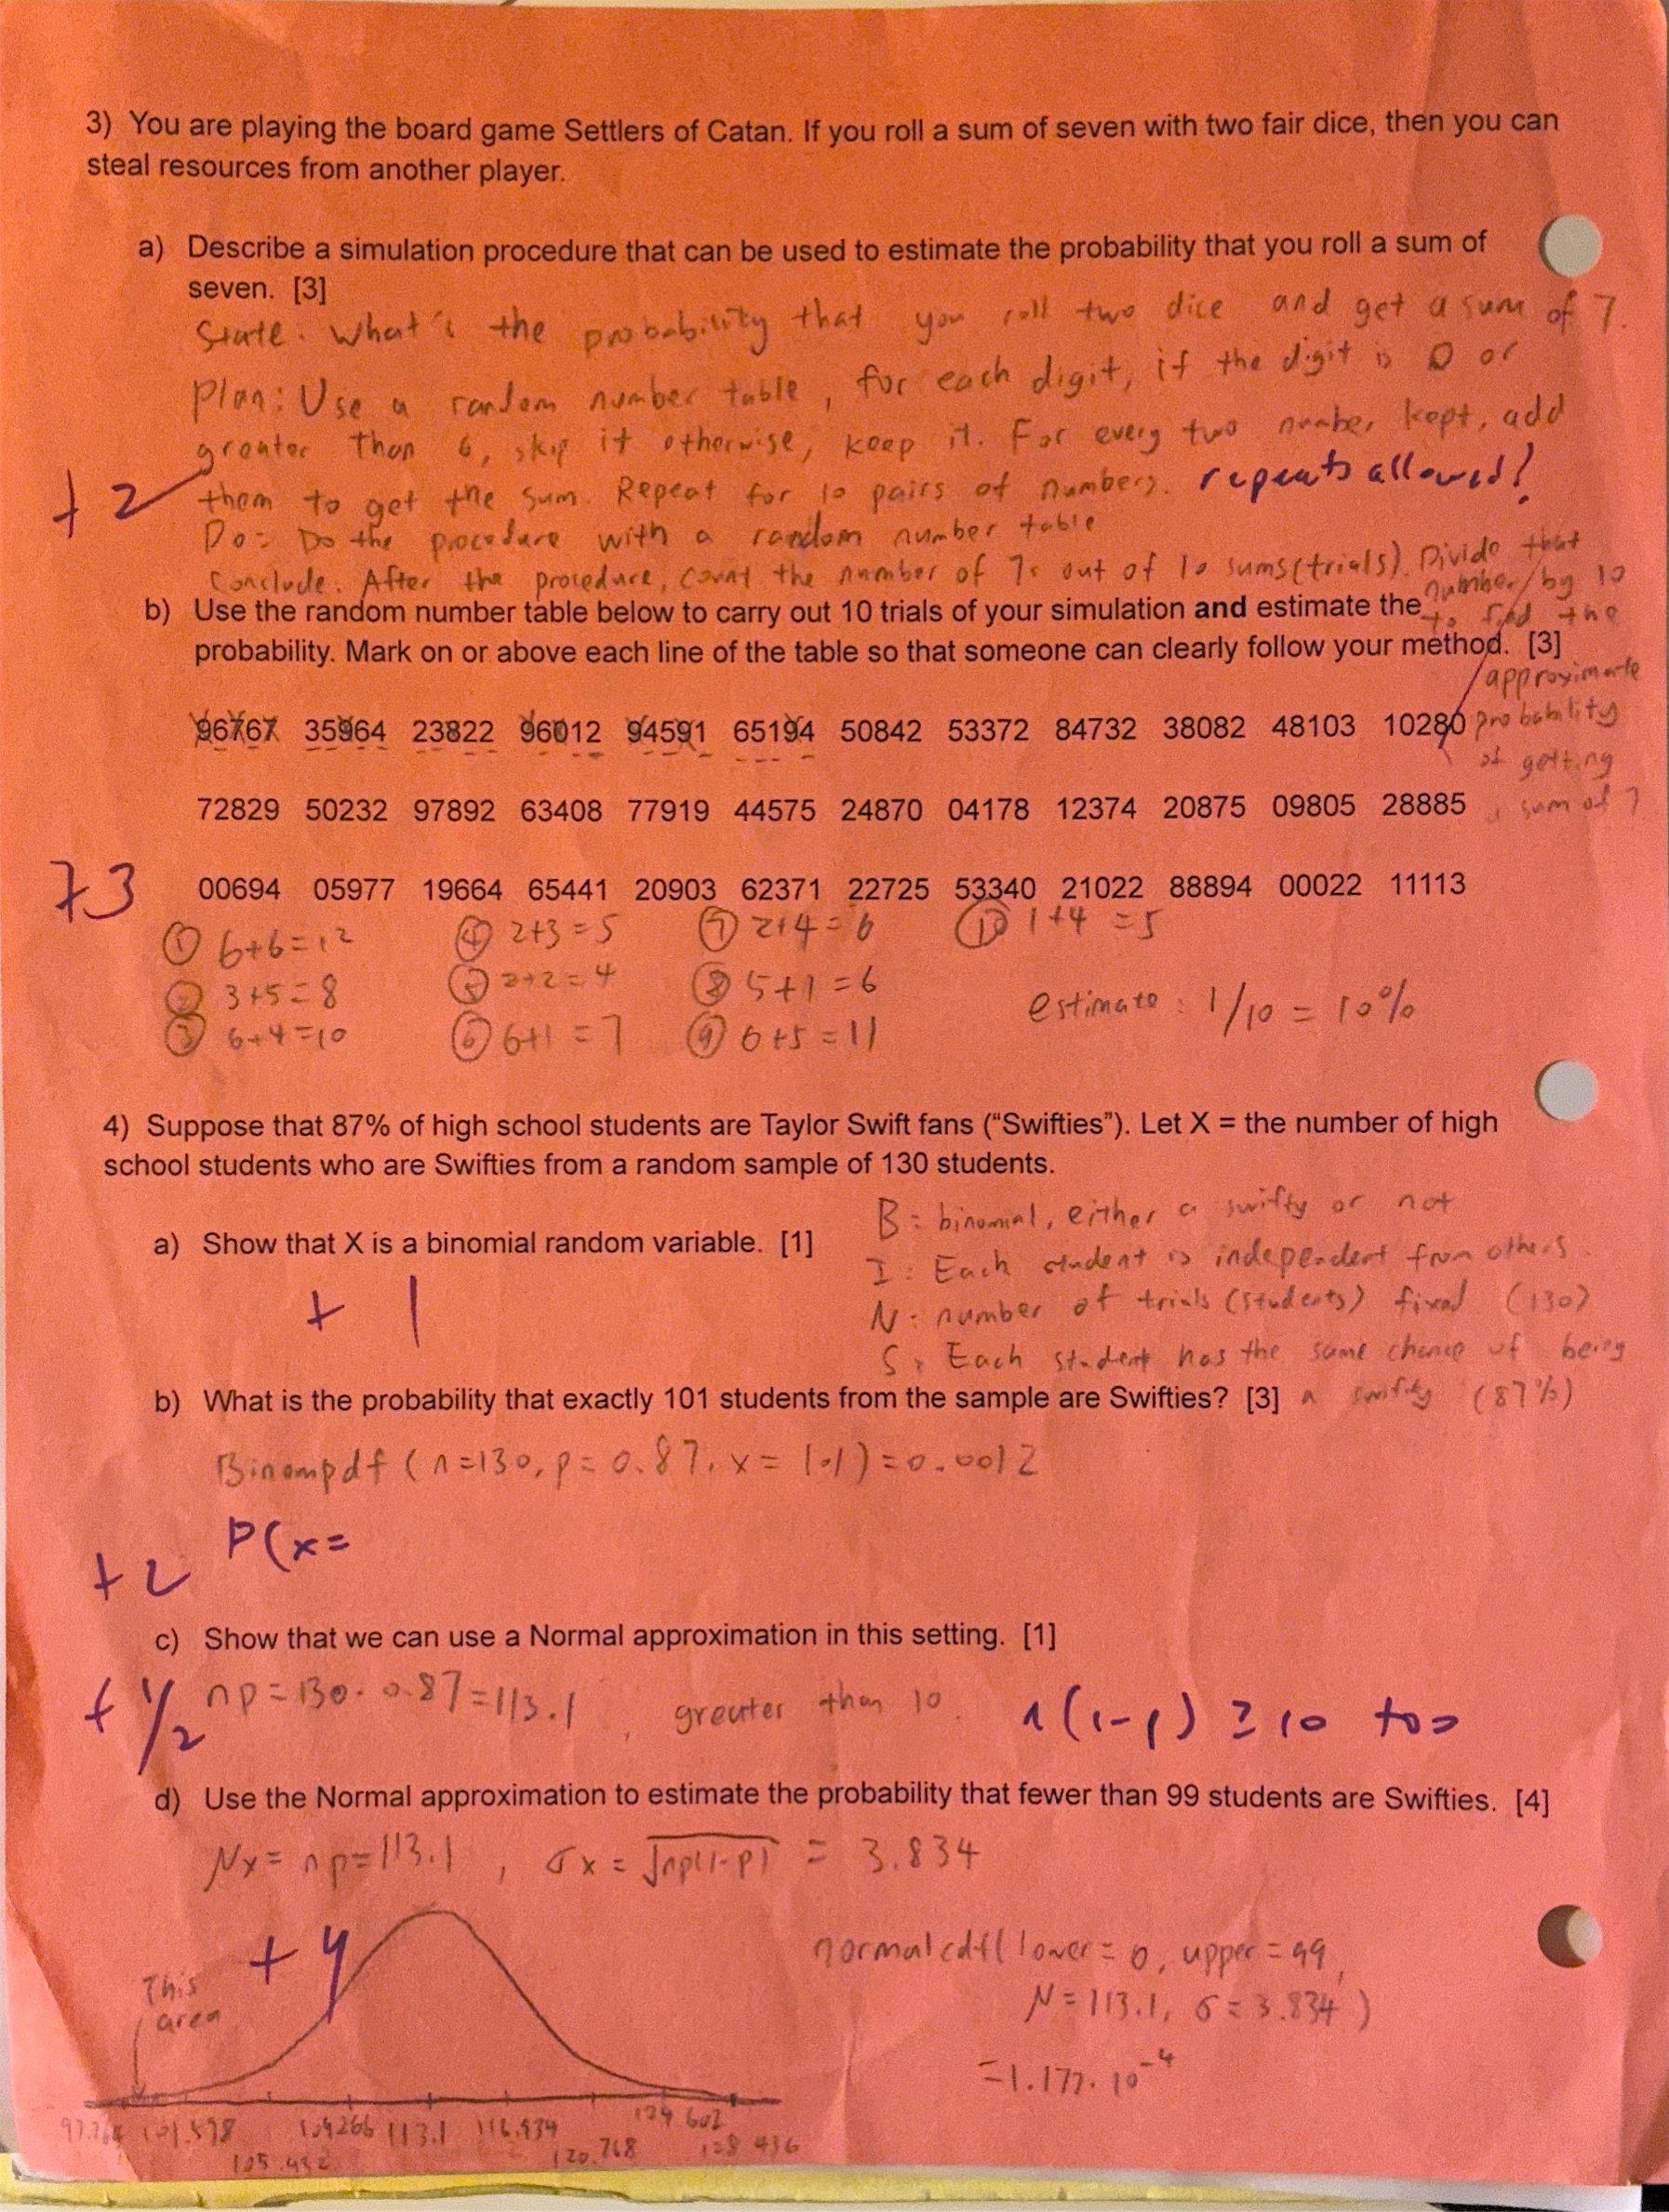 3) You are playing the board game Settlers of Catan. If you roll a sum of seven with two fair dice, then you can
steal resources from another player.
a) Describe a simulation procedure that can be used to estimate the probability that you roll a sum of
seven. [3]
State: What's the probability that you roll two dice and get a sum of 7.
Plan: Use a random number table, for each digit, if the digit is 0 or
greater than 6, skip it otherwise, keep it. For every two number kept, add
them to get the sum. Repeat for 10 pairs of numbers. repeats allowed?
+2
Do: Do the procedure with a random number table
Conclude: After the procedure, count the number of 7s out of 10 sums(trials). Divide that
number by 10
to find the
approximate
probability
of getting
a sum of 7
b) Use the random number table below to carry out 10 trials of your simulation and estimate the
probability. Mark on or above each line of the table so that someone can clearly follow your method. [3]
96767 35964 23822 96012 94591 65194 50842 53372 84732 38082 48103 10280
72829 50232 97892 63408 77919 44575 24870 04178 12374 20875 09805 28885
+3
00694 05977 19664 65441 20903 62371 22725 53340 21022 88894 00022 11113
① 6+6=12 ④ 2+3=5 ⑦ 2+4=6 ⑩ 1+4=5
② 3+5=8 ⑤ 2+2=4 ⑧ 5+1=6
③ 6+4=10 ⑥ 6+1=7 ⑨ 6+5=11
estimate: 1/10 = 10%
4) Suppose that 87% of high school students are Taylor Swift fans (“Swifties”). Let X = the number of high
school students who are Swifties from a random sample of 130 students.
a) Show that X is a binomial random variable. [1]
+1
B: binomial, either a swifty or not
I: Each student is independent from others.
N: number of trials (students) fixed (130)
S: Each student has the same chance of being
a swifty (87%)
b) What is the probability that exactly 101 students from the sample are Swifties? [3]
Binompdf (n=130, p=0.87, x=101)=0.0012
P(x=
+2
c) Show that we can use a Normal approximation in this setting. [1]
+1/2
np=130·0.87=113.1, greater than 10. n(1-p) ≥ 10 too
d) Use the Normal approximation to estimate the probability that fewer than 99 students are Swifties. [4]
μx = np=113.1, σx = √np(1-p) = 3.834
+4
This
area
normalcdf(lower=0, upper=99,
μ=113.1, σ=3.834)
=1.177·10⁻⁴
101.598 109.266 113.1 116.934 124.602
105.432 120.768 128.436